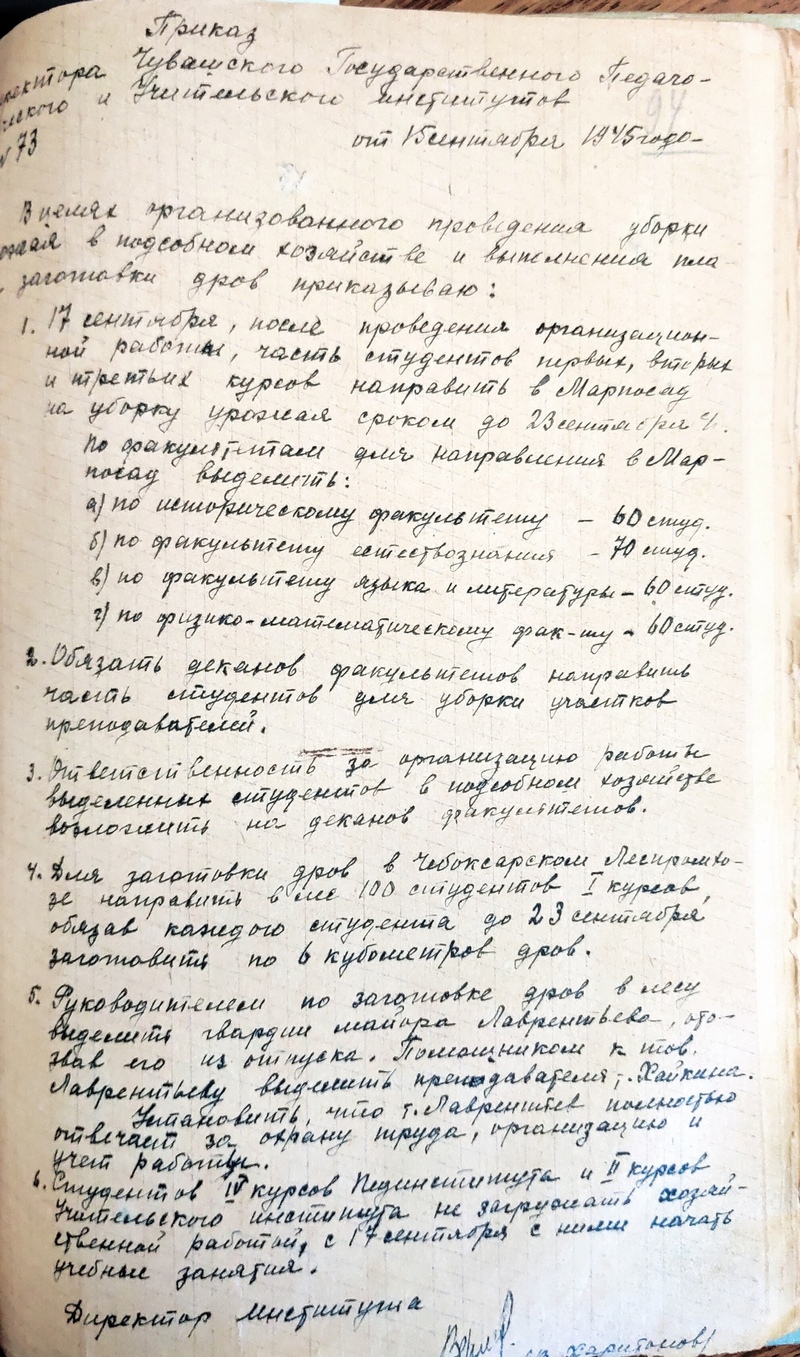 Приказ
ректора Чувашского Государственного Педаго-
ческого и Учительского институтов
№ 73
от 15 сентября 1945 года
94
В целях организованного проведения уборки
рожая в подсобном хозяйстве и выполнения пла-
заготовки дров приказываю:
1. 17 сентября, после проведения организацион-
ной работы, часть студентов первых, вторых
и третьих курсов направить в Марпосад
на уборку урожая сроком до 23 сентября
По факультетам для направления в Мар-
посад выделить:
а) по историческому факультету – 60 студ.
б) по факультету естествознания – 70 студ.
в) по факультету языка и литературы – 60 студ.
г) по физико-математическому фак-ту – 60 студ.
2. Обязать деканов факультетов направить
часть студентов для уборки участков
преподавателей.
3. Ответственность за организацию работы
выделенных студентов в подсобном хозяйстве
возложить на деканов факультетов.
4. Для заготовки дров в Чебоксарском Леспромхо-
зе направить в лес 100 студентов I курсов,
обязав каждого студента до 23 сентября
заготовить по 6 кубометров дров.
5. Руководителем по заготовке дров в лесу
выделить гвардии майора Лаврентьева, ото-
звав его из отпуска. Помощником к тов.
Лаврентьеву выделить преподавателя т. Хайкина.
Установить, что т. Лаврентьев полностью
отвечает за охрану труда, организацию и
учет работы.
6. Студентов IV курсов Пединститута и II курсов
Учительского института не загружать хозяй-
ственной работой, с 17 сентября с ними начать
учебные занятия.
Директор института
Харитонов/